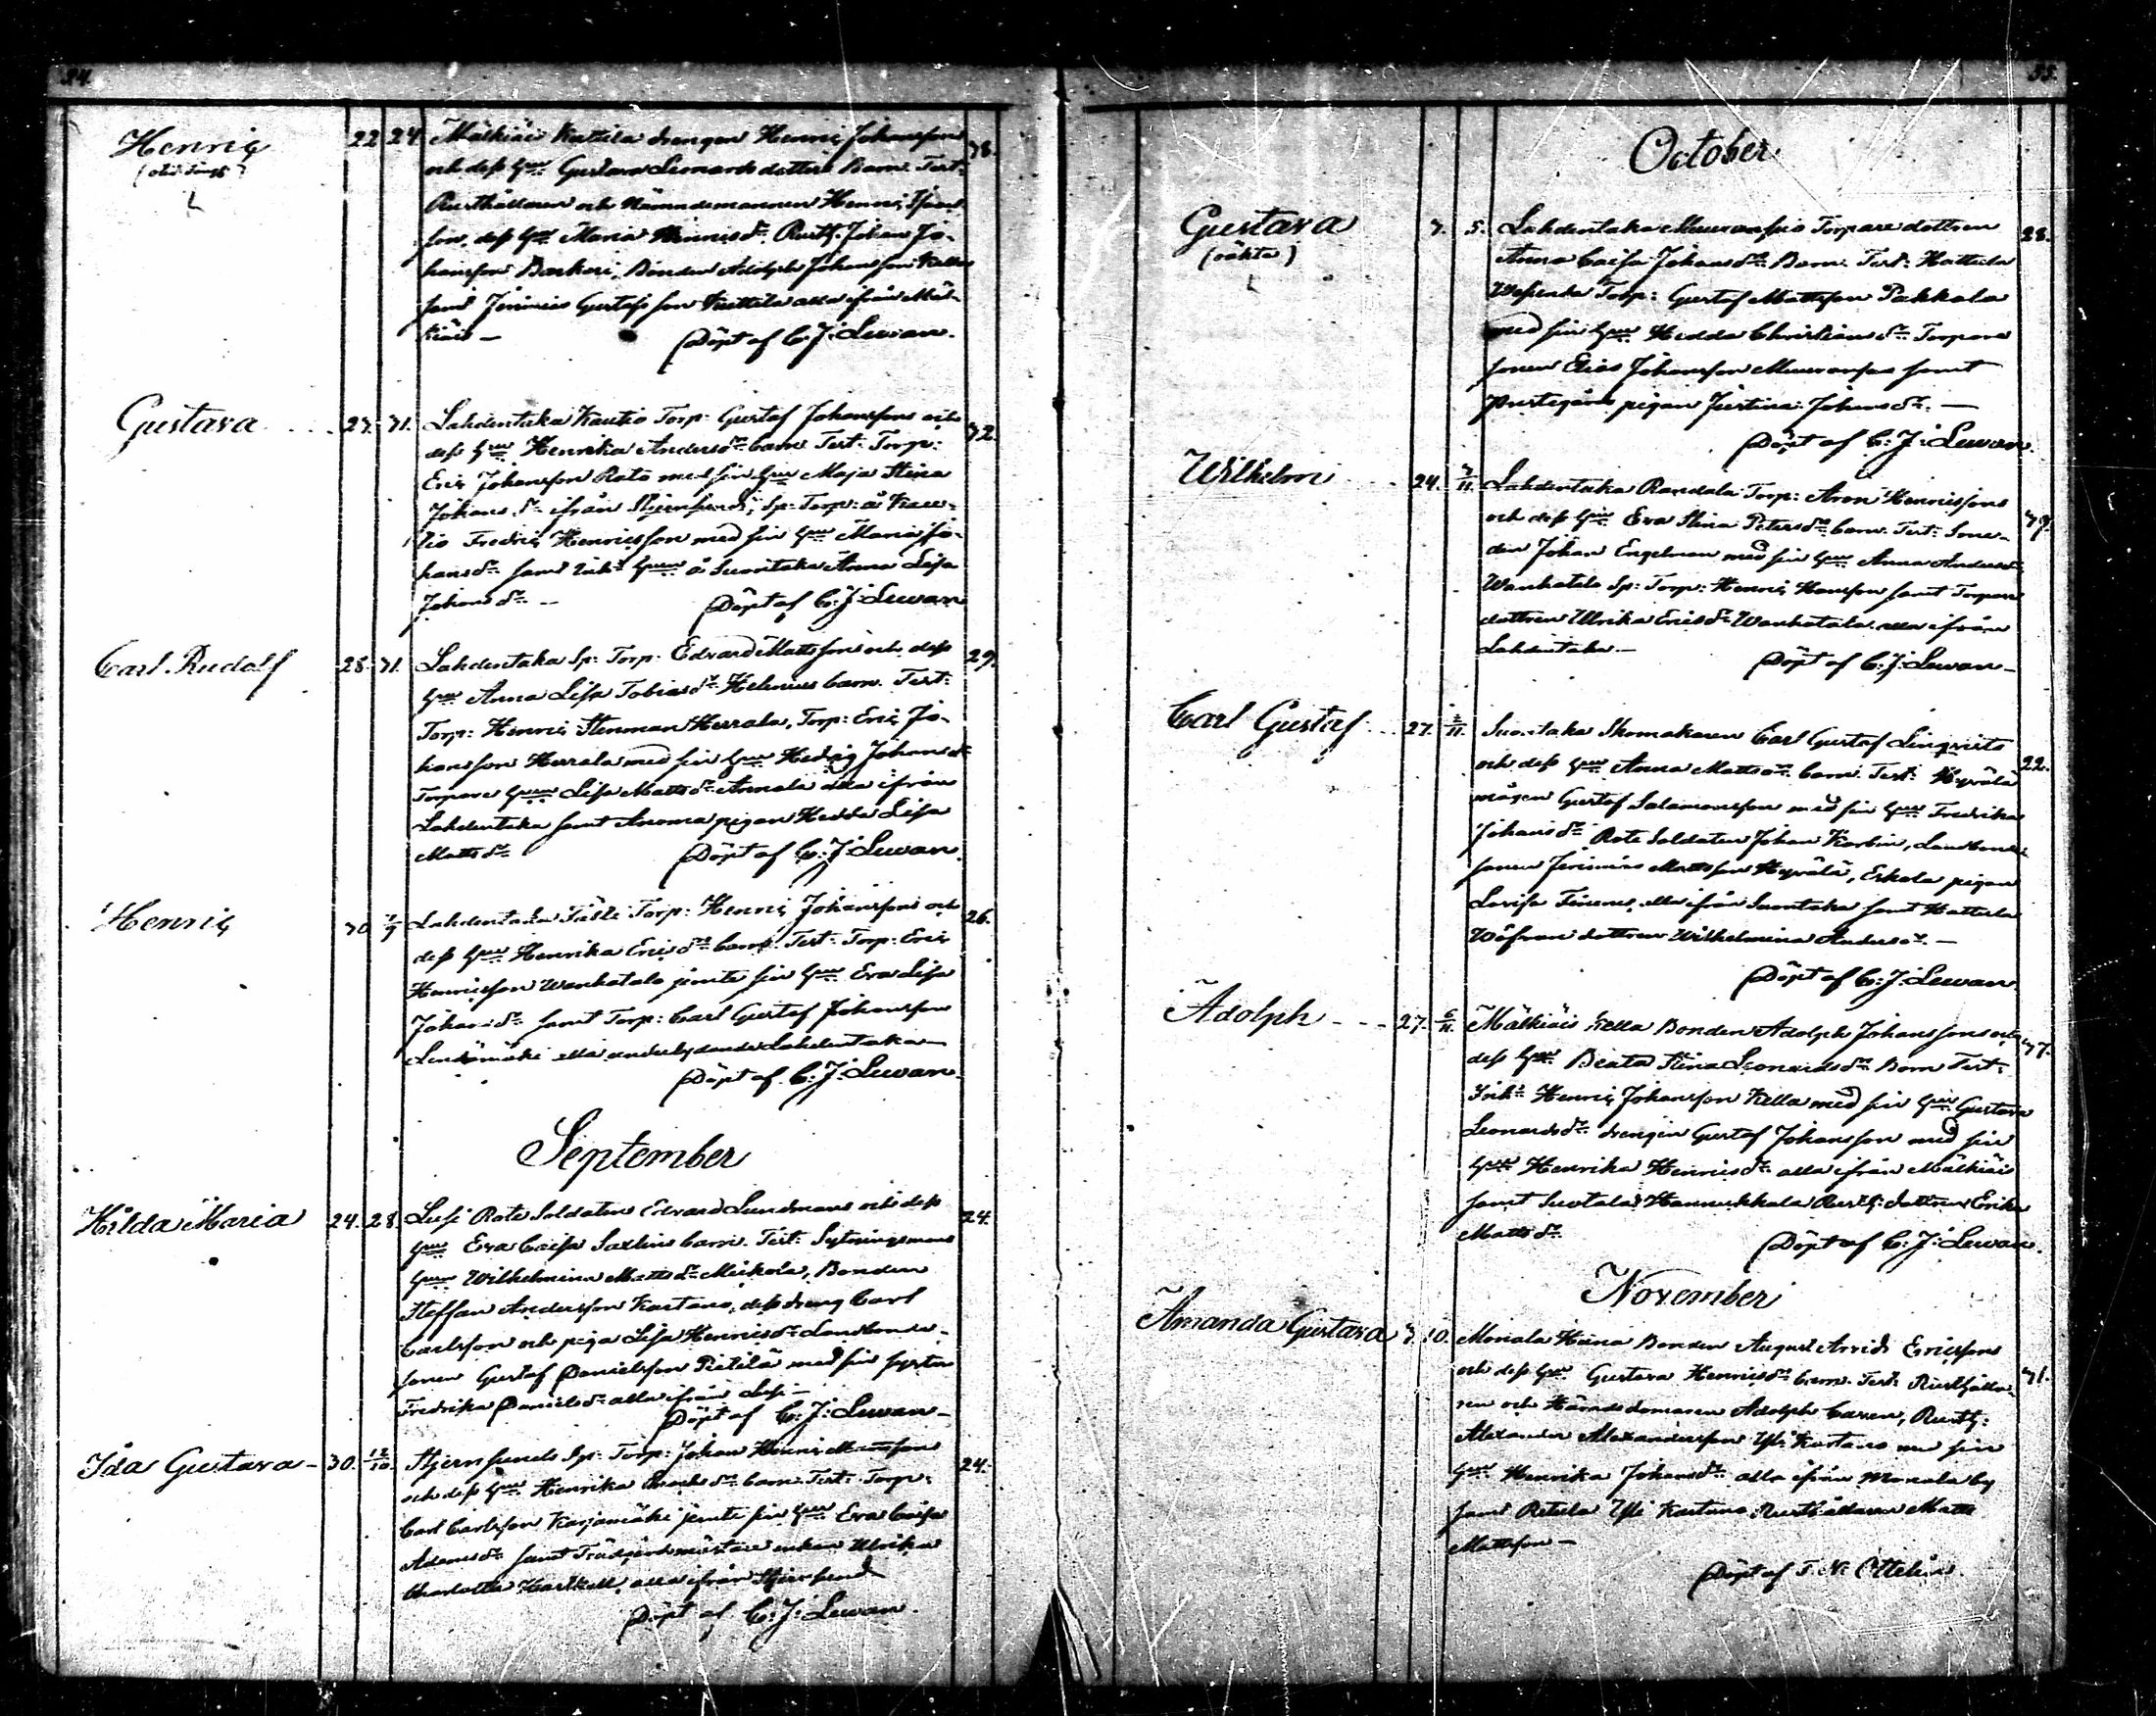 34.
Henric 22 24 Mälkiäis Kutila drengen Henric Johansson 38.
och dess hu Gustava Leonards dotters Barn. Test:
Rusthållaren och Nämndemannen Henric
son, dess hu Maria Henricsdr, Rusth. Johan Jo-
hansson Barkari, Bonden Adolph Johansson Kella
samt Jeremias Gustafsson Kuttila alla ifrån Mäl-
kiäis —
Döpt af C: J: Lewan.
Gustava 27. 31. Lahdentaka Kautio Torp: Gustaf Johanssons och 32.
dess hu Henrika Andersdr barn. Test: Torp:
Eric Johansson Rato med sin hu Maja Stina
Johansdr ifrån Stjernsund, Sp: Torp: å Kau-
tio Fredric Henricsson med sin hu Maria Jo-
hansdr samt Inh: hu å Suontaka Anna Lisa
Johansdr —
Döpt af C: J: Lewan
Carl Rudolf 28. 31. Lahdentaka Sp: Torp: Edvard Mattssons och dess 29.
hu Anna Lisa Tobiasdr Helenius barn. Test:
Torp: Henric Stenman Herrala, Torp: Eric Jo-
hansson Herrala med sin hu Hedvig Johansdr
Torpare hu Lisa Mattsdr Annala alla ifrån
Lahdentaka samt Anoma pigan Hedda Lisa
Mattsdr
Döpt af C: J: Lewan.
Henric 30 7/9 Lahdentaka Torp: Henric Johanssons och 26.
dess hu Henrika Ericsdr barn. Test: Torp: Eric
Henricsson Wanhatalo jemte sin hu Eva Lisa
Johansdr samt Torp: Carl Gustaf Johansson
alla underlydande Lahdentaka —
Döpt af C: J: Lewan.
September
Hilda Maria 24. 28. Lusi Rote Soldaten Edvard Lundmans och dess 24.
hu Eva Caisa Saxlins barn. Test: Sytningsmans
hu Wilhelmina Mattsdr Mickola, Bonden
Steffan Andersson Kartano, dess dreng Carl
Carlsson och piga Lisa Henricsdr Landbonde-
sonen Gustaf Danielsson Pietilä med sin syster
Fredrika Danielsdr alla ifrån Lusi —
Döpt af C: J: Lewan —
Ida Gustava — 30. 12/10. Stjernsunds Sp: Torp: Johan Henric Mattsson 24.
och dess hu Henrika barn. Test: Torp:
Carl Carlsson Karjamäki jemte sin hu Eva Caisa
Adamsdr samt Trädgårdsmästare enkan Ulrika
Charlotta alla ifrån Stjernsund
Döpt af C: J: Lewan.
35.
October
Gustava 3. 5. Lahdentaka Torpare dottren 28.
(oäkta) Anna Caisa Johansdrs Barn. Test: Hattula
Torp: Gustaf Mattsson Pakkala
med sin hu Hedda Christiansdr Torpare
sonen Elias Johansson samt
Prestegårds pigan Justina Johansdr. —
Döpt af C: J: Lewan.
Wilhelm 24. 3/11. Lahdentaka Randala Torp: Aron Henricssons 39.
och dess hu Eva Stina Petersdr barn. Test: Sme-
den Johan Engelman med sin hu Anna Andersdr
Wanhatalo Sp: Torp: Henric Hansson samt Torpare
dottren Ulrika Ericsdr Wanhatalo alla ifrån
Lahdentaka —
Döpt af C: J: Lewan —
Carl Gustaf 27. 2/11. Suontaka Skomakaren Carl Gustaf Linqvists 22.
och dess hu Anna Mattsdr barn. Test: Hyvälä
mågen Gustaf Salamonsson med sin hu Fredrika
Johansdr Rote Soldaten Johan Korbin, Landbonde
sonen Jeremias Mattsson Hyvälä, Eskola pigan
Lovisa alla ifrån Suontaka samt Hattula
dottren Wilhelmina Andersdr. —
Döpt af C: J: Lewan.
Adolph 27. 6/11. Mälkiäis Kella Bonden Adolph Johanssons och 37.
dess hu Beata Stina Leonardsdr Barn Test:
Inh: Henric Johansson Kella med sin hu Gustava
Leonardsdr drengen Gustaf Johansson med sin
hu Henrika Henricsdr alla ifrån Mälkiäis
samt Suotala Hannukkala Rusth: dottren Erika
Mattsdr
Döpt af C: J: Lewan.
November
Amanda Gustava 3. 10. Monala Bonden August Arvid Ericssons 31.
och dess hu Gustava Henricsdr barn. Test: Rusthålla-
ren och Häradsdomaren Adolph Caren, Rusth:
Alexander Alexandersson Yli Kartano med sin
hu Henrika Johansdr alla ifrån Monala by
samt Retula Yli Kartano Rusthållaren Matts
Mattsson —
Döpt af T. N. Ottelin.